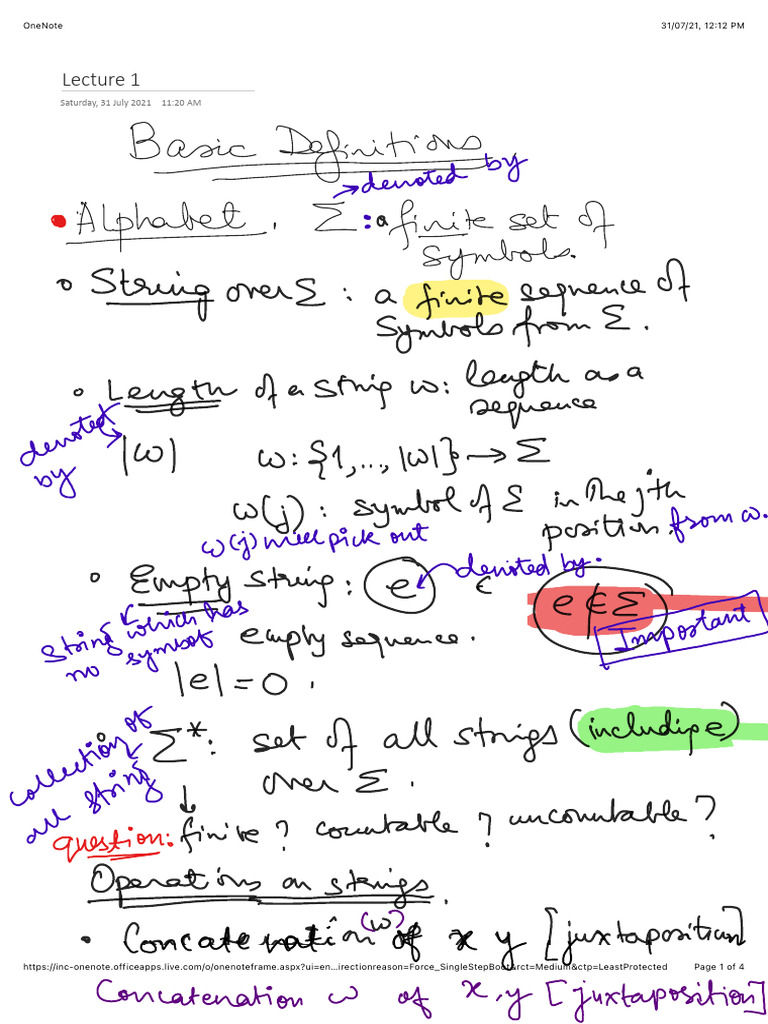 OneNote 31/07/21, 12:12 PM
Lecture 1
Saturday, 31 July 2021 11:20 AM
Basic Definitions
→ denoted by
• Alphabet. Σ : a finite set of
symbols.
• String over Σ : a finite sequence of
symbols from Σ.
• Length of a string w: length as a
sequence
denoted by
|w| w: {1,..., |w|} → Σ
w(j) : symbol of Σ in the jth
position from w.
w(j) will pick out
denoted by.
• Empty string: e ϵ e ∉ Σ
Important
string which has
no symbol
empty sequence.
|e| = 0.
collection of
all string
• Σ*: set of all strings (includip e)
over Σ.
question: finite? countable? uncountable?
Operations on strings.
• Concatenation (w) of x y [juxtaposition]
https://inc-onenote.officeapps.live.com/o/onenoteframe.aspx?ui=en...irectionreason=Force_SingleStepBoot&rct=Medium&ctp=LeastProtected Page 1 of 4
Concatenation w of x,y [juxtaposition]